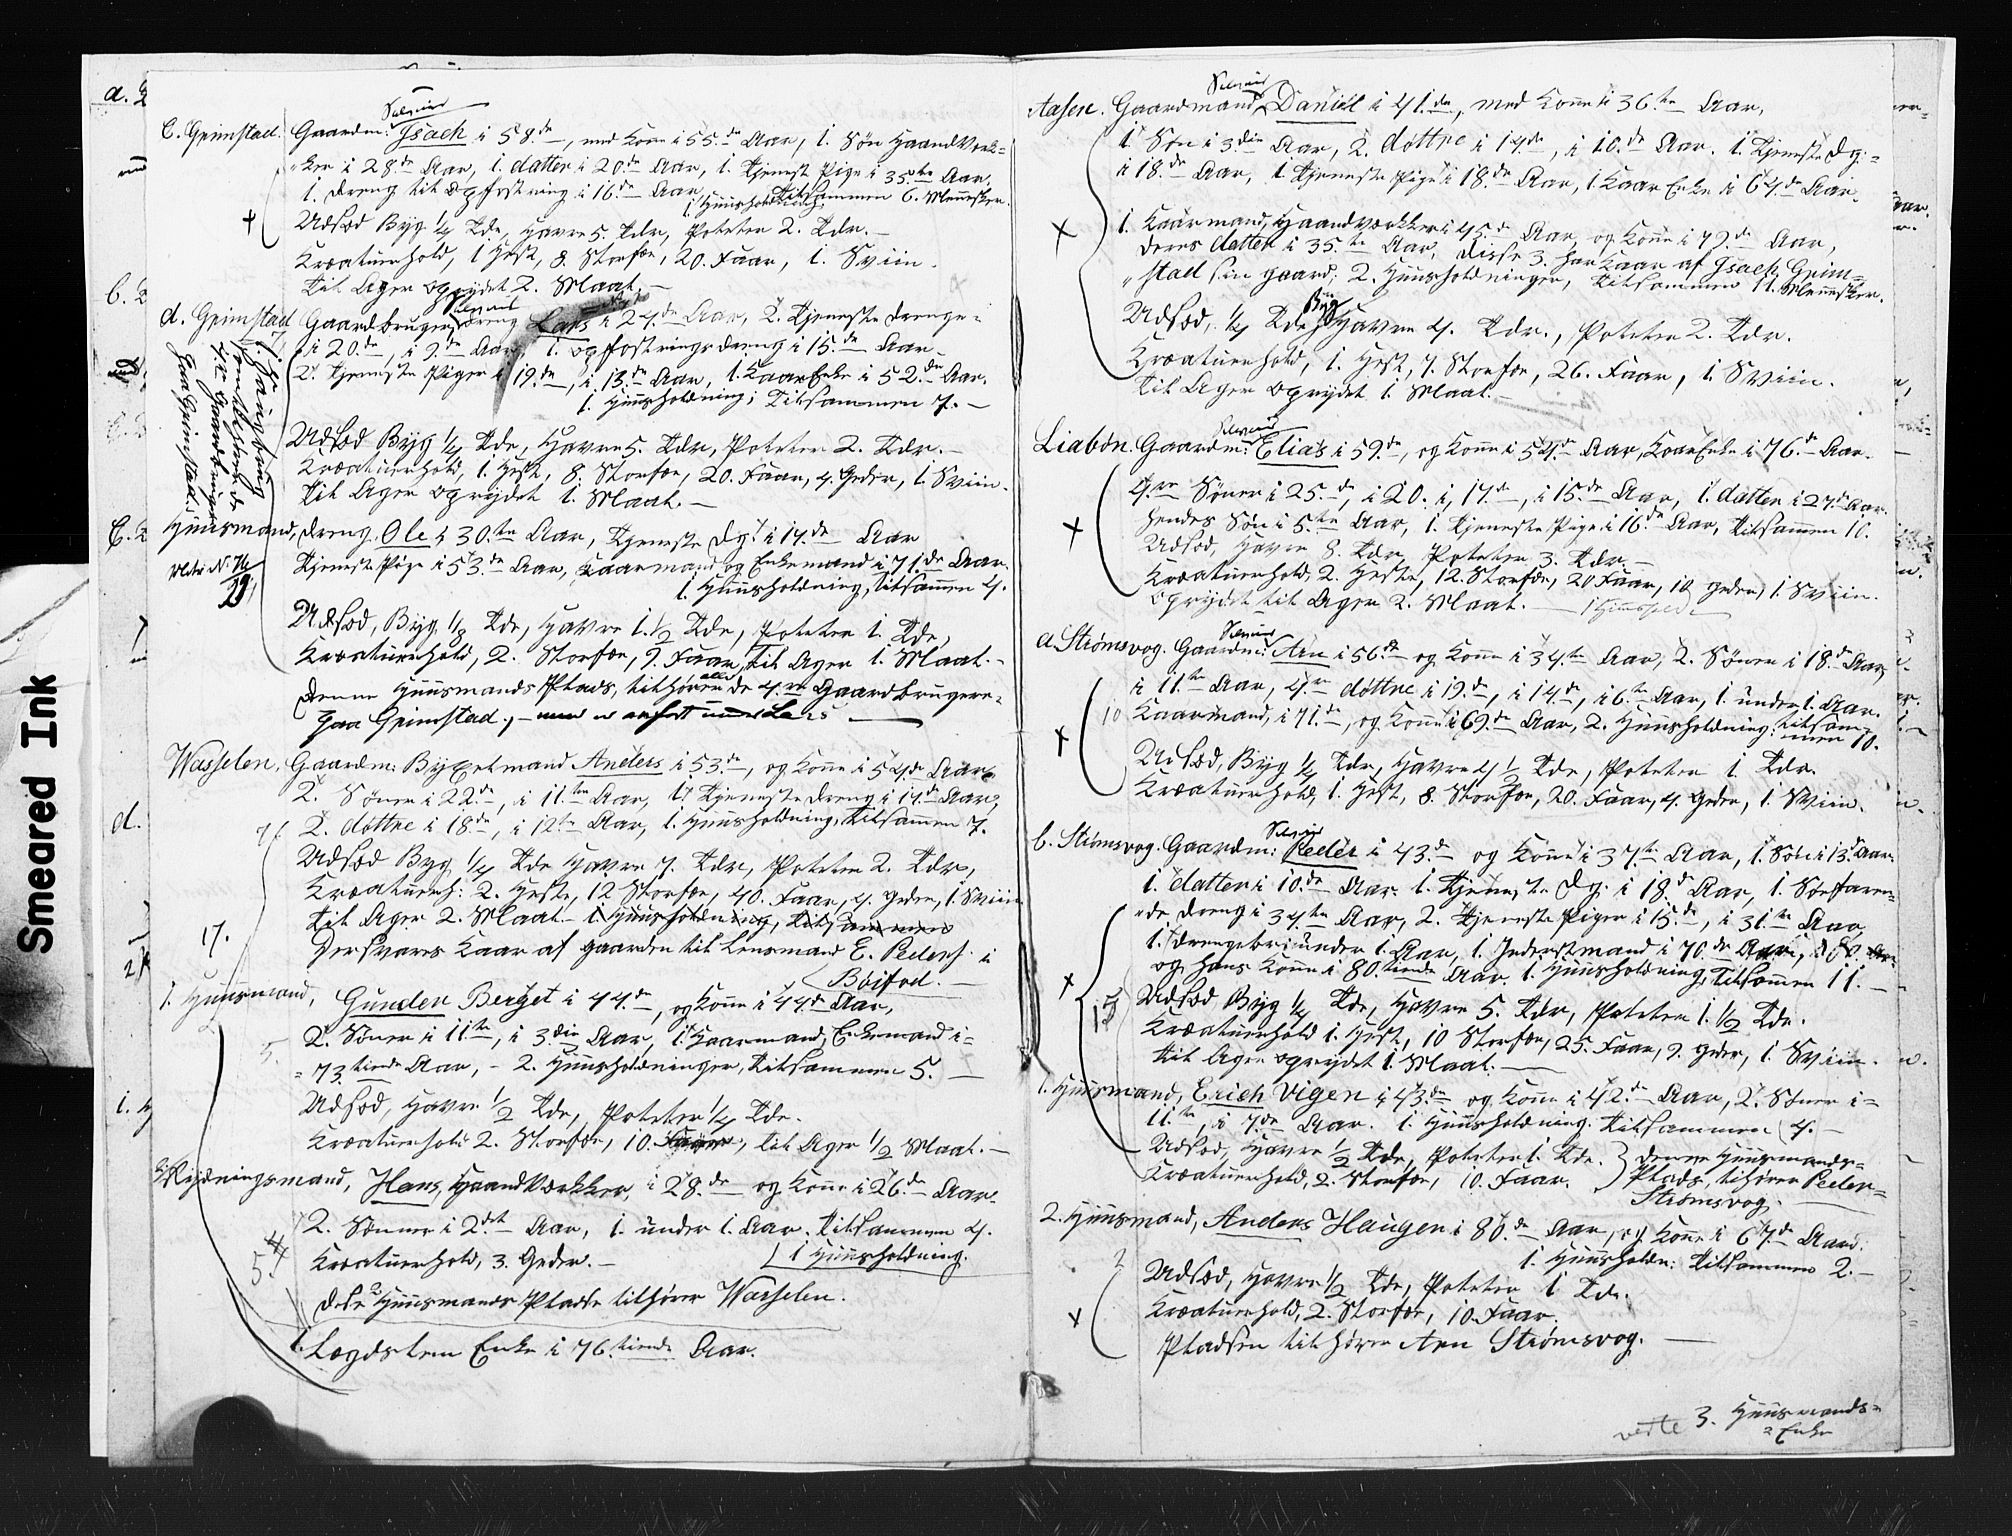 Selveier
C. Grimstad. Gaardm: Isach i 58.de, med Kone i 55.de Aar, 1. Søn Haandværk=
=ker i 28.de Aar, 1. datter i 20.de Aar, 1. Tjeneste Pige i 35.te Aar,
1. dreng til opfostring i 16.de Aar, tilsammen 6. Mennesker.
1. Huusholdning,
Udsæd Byg 1/4 Tde, Havre 5. Tdr, Poteter 2. Tdr. —
Kreaturhold, 1 Hest, 8. Storfæ, 20. Faar, 1. Sviin.
til Ager oprydet 2. Maal. —
Selveier
d. Grimstad Gaardbruger, dreng Lars i 24.de Aar, 2. Tjeneste drenge=
i 20.de, i 9.de Aar, 1. opfostringsdreng i 15.de Aar.
2. Tjeneste Piger i 19.de, i 13.de Aar, 1. Kaar Enke i 52.de Aar.
1. Huusholdning; tilsammen 7. —
Udsæd Byg 1/4 Tde, Havre 5. Tdr, Poteter 2. Tdr. —
Kreaturhold, 1. Hest, 8. Storfæ, 20. Faar, 4. Geder, 1. Sviin.
til Ager oprydet 1. Maal. —
Huusmand, dreng Ole i 30.te Aar, Tjeneste Dg: i 14.de Aar
Tjeneste Pige i 53.de Aar, Kaarmand og Enkemand i 71.de Aar.
1. Huusholdning, tilsammen 4.
29
Udsæd, Byg 1/8 Tde, Havre 1.1/2 Tde, Poteter 1. Tde,
Kreaturhold, 2. Storfæ, 9. Faar, til Ager 1. Maal. —
denne Huusmands Plads, tilhører alle de 4.re Gaardbrugere
paa Grimstad.
Wasselen. Gaardm: Byxelmand Anders i 53.de, og Kone i 54.de Aar
2. Sønner i 22.de, i 11.te Aar, 1. Tjeneste dreng i 14.de Aar,
2. døttre i 18.de, i 12te Aar, 1. Huusholdning, tilsammen 7.
Udsæd Byg 1/4 Tde Havre 7. Tdr, Poteter 2. Tdr,
Kreaturh: 2. Heste, 12 Storfæ, 40. Faar, 4. Geder, 1. Sviin
til Ager 2. Maal — 1. Huusholdning, tilsammen
17.
Dersvares Kaar af gaarden til Lensmand E. Peders: i
Böifod. —
1. Huusmand, Gunder Berget i 44.de, og Kone i 44.de Aar,
2. Sønner i 11te, i 3die Aar, 1. Kaarmand, Enkemand i=
=73.tiende Aar, — 2. Huusholdninger, tilsammen 5. —
Udsæd, Havre 1/2 Tde, Poteter 1/4 Tde.
Kreaturhold 2. Storfæ, 10. Faar, til Ager 1/2 Maal. —
Rydningsmand, Hans, Haandværkker, i 28.de og Kone i 26.de Aar.
2. Sønner i 2.det Aar, 1. under 1. Aar. tilsammen 4.
Kreaturhold, 3. Geder. — 1 Huusholdning.
5.
disse Huusmands Pladse tilhører Wasselen.
1. Lægdslem Enke i 76.tiende Aar.
Selveier
Aasen. Gaardmand, Daniel i 41.de, med Kone i 36te Aar,
1. Søn i 3.die Aar, 2. døttre i 14.de, i 10.de Aar. 1. Tjeneste Dg:=
i 18.de Aar, 1. Tjeneste Pige i 18.de Aar, 1. Kaar Enke i 64.de Aar.
1. Kaarmand, Haandværkker i 45.de Aar, og Kone i 49.de Aar,
deres datter i 35.te Aar, disse 3. har Kaar af Isach Grim=
=stad sin gaard; 2. Huusholdninger, tilsammen 11. Mennesker.
Udsæd, 1/4 Tde Byg Havre 4. Tdr., Poteter 2. Tdr.
Kreaturhold, 1. Hest, 7. Storfæ, 26. Faar, 1. Sviin.
til Ager oprydet 1. Maal. —
Selveier
Liabøn. Gaardm: Elias i 59.de, og Kone i 54.de Aar, Kaar Enke i 76.de Aar.
4.re Sønner i 25.de, i 20. i, 17.de, i 15.de Aar, 1. datter i 27.de Aar.
hendes Søn i 5.te Aar, 1. Tjeneste Pige i 16.de Aar, tilsammen 10.
Udsæd, Havre 8. Tdr, Poteter 3. Tdr. —
Kreaturhold, 2. Heste, 12. Storfæ, 20 Faar, 10 Geder, 1. Sviin.
oprydet til Ager 2. Maal. —
Selveier
a. Strømsvog. Gaardm: Arn i 56.de og Kone i 34.te Aar, 2. Sønner i 18.de Aar
i 11.te Aar, 4.re døttre i 19.de, i 14.de, i 6.te Aar, 1. under 1. Aar.
10 Kaarmand, i 71.de, og Kone i 69.de Aar, 2. Huusholdning: tilsam=
men 10.
Udsæd, Byg 1/4 Tde, Havre 4 1/2 Tde, Poteter 1 Tdr.
Kreaturhold, 1. Hest, 8. Storfæ, 20. Faar, 4. Geder, 1. Sviin.
Selveier
b. Strømsvog. Gaardm: Peder i 43.de og Kone i 37.te Aar, 1. Søn i 13.de Aar.
1. datter i 10.de Aar. 1. Tjeneste Dg: i 18.de Aar, 1. Søefaren=
=de dreng i 34.te Aar, 2. Tjeneste Piger i 15.de, i 31.te Aar,
1. drengebrn under 1. Aar, 1. Inderstmand i 70.de Aar,
og hans Kone i 80.tiende Aar. 1. Huusholdning, tilsammen 11. —
15 Udsæd Byg 1/4 Tde, Havre 5. Tdr, Poteter 1.1/2 Tde.
Kreaturhold 1. Hest, 10 Storfæ, 25. Faar, 9. Geder, 1. Sviin.
til Ager oprydet 1. Maal. —
1. Huusmand, Erich Vigen i 43.de og Kone i 42.de Aar, 2. Sønner i=
11.te, i 7.de Aar. 1. Huusholdning. tilsammen 4. —
Udsæd, Havre 1/2 Tde, Poteter 1. Tde. denne Huusmands=
Kreaturhold, 2. Storfæ, 10. Faar. Plads, tilhører Peder=
Strømsvog.
2. Huusmand, Anders Haugen i 80.de Aar, og Kone i 67.de Aar.
1. Huusholdn: tilsammen 2. —
Udsæd, Havre 1/2 Tde, Poteter 1 Tde.
Kreaturhold, 2. Storfæ, 10. Faar.
Pladsen tilhører Arn Strømsvog. —
verte 3. Huusmands=
=Enke
Smeared Ink